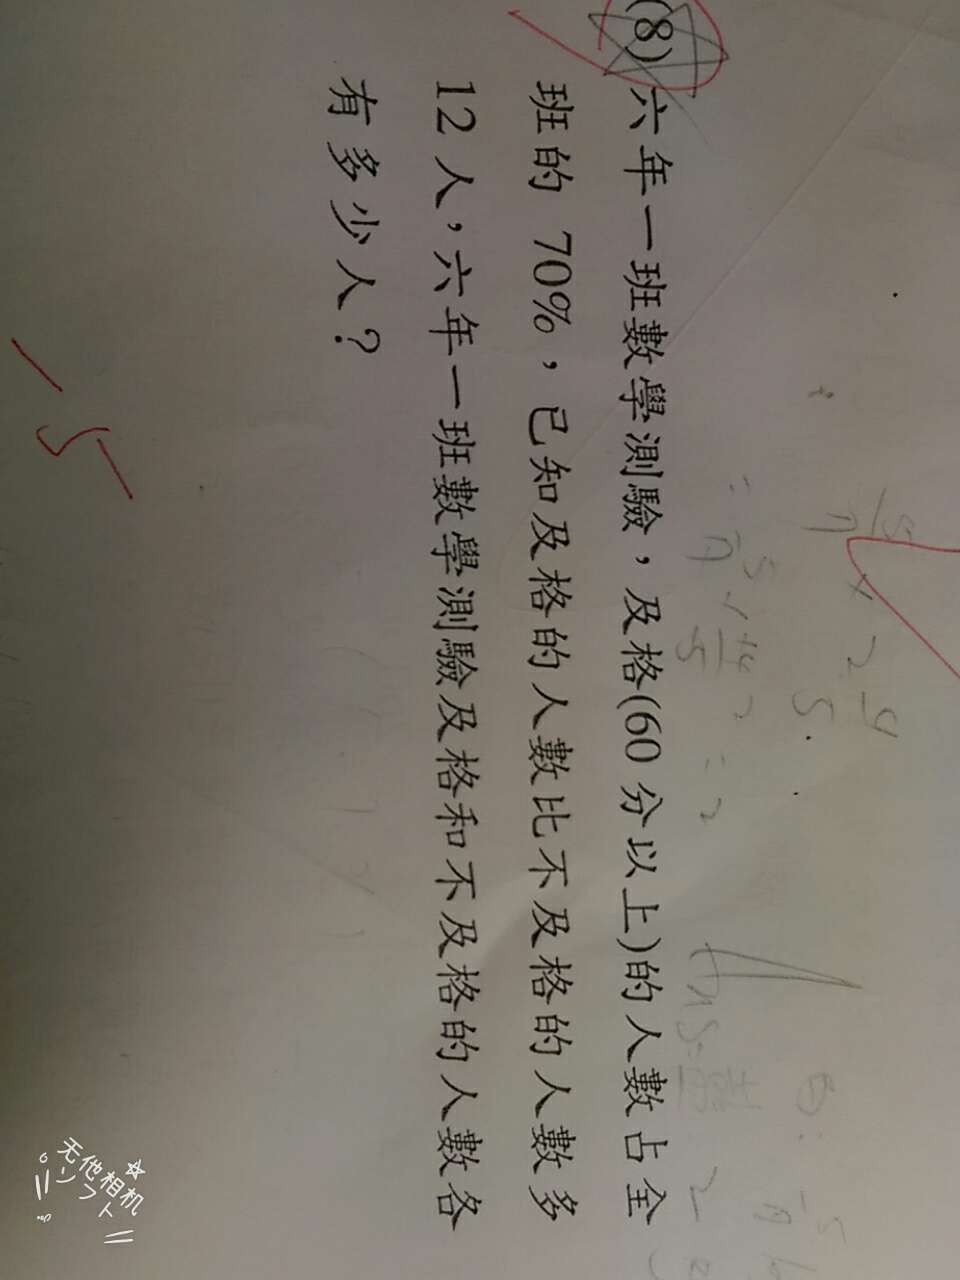 (8) 六年一班數學測驗，及格(60 分以上)的人數占全
班的 70%，已知及格的人數比不及格的人數多
12 人，六年一班數學測驗及格和不及格的人數各
有多少人？
-5
无他相机
ソフト